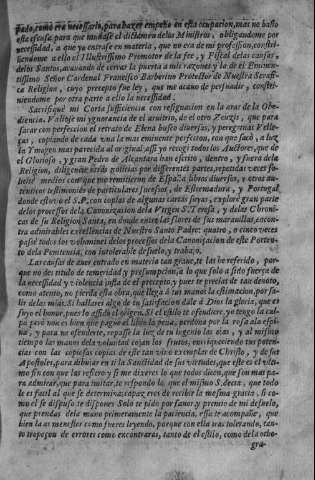 pado, como era necessario, para hazer empeño en esta ocupacion, mas no bastò
esta escusa para que mudasse el dictamen de los Ministros, obligandome por
necessidad, a que yo entrase en materia, que no era de mi profession, constri-
ñiendome a ello el Illustrissimo Promotor de la fee, y Fiscal de las causas,
de los Santos, acusando de cerrar la puerta a mis razones y la de el Eminen-
tissimo Señor Cardenal Francisco Barberino Protector de Nuestra Serafi-
ca Religion, cuyo precepto fue ley, que me acabo de persuadir, constri-
ñiendome por otra parte a ello la necessidad.
Sacrifiquè mi Corta sufficiencia con resignacion en la arar de la Obe-
diencia. Valiose mi ygnorancia de el arbitrio, de el otro Zeuzis, que para
sacar con perfeccion el retrato de Elena busco diversas, y peregrinas Velle-
ças, copiando de cada una lo mas eminente perfeccion, con que sacò, a luz
la Ymagen mas parecida al original; assi yo recogì todos los Auctores, que de
el Glorioso, y gran Pedro de Alcantara han escrito, dentro, y fuera de la
Religion, diligenciè otras noticias por differentes partes, repetidas veces so-
licitè medios con que me remitieron de España libros diversos, y otros au-
tenticos testimonios de particulares sucessos, de Estremadura, y Portugal
donde estuvo el S. P. con copias de algunas cartas suyas, explorè gran parte
delos processos de la Canonizacion dela Virgen S. Teresa, y delas Chroni-
cas de su Religion Santa, en donde entre las flores de sus maravillas, encon-
tre admirables excellencias de Nuestro Santo Padre: quatro, o cinco veces
passè todos los volumines delos processos dela Canonizacion de este Porten-
to dela Penitencia, con intolerable desuelo, y trabajo.
Las causas de aver entrado en materia tan grave, te las he referido, por-
que no des titulo de temeridad y presumpcion, a lo que solo a sido fuerza de
la necessidad y violencia justa de el precepto; y pues te precias de tan devoto,
como atento, no pierda esta obra, que llega à tus manos la estimacion, por sa-
lir delas mias. Si hallares algo de tu satisfacion dàle à Dios la gloria, que es
suyo el honor, pues lo assistiò el origen. Si el estilo te ofendiere, yo tengo la cul-
pa però non es bien que pague el libro la pena; perdona por la rosa ala espi-
na, y para no ofenderte, repasse la luz de tu ingenio las ojas, y al mismo
tiempo las manos dela voluntad cojan los frutos, enriqueciendo tus poten-
cias con las copiosas copias de este tan vivo exemplar de Christo, y de sus
Apostoles, para dibuiar en ti la Santidad de sus virtudes, que este es el ulti-
mo fin con que las refiero: y si me dixeres lo que todos dicen, que son mas pa-
ra admirar, que para imitar, te respondo lo que el mismo S. decia, que todo
le es facil al que se determina; capaz eres de recibir la mesma gracia, si co-
mo el se dispuso te dispones. Solo te pido por favor, y premio de mi desuelo,
que prendas dela mano primeramente la paciencia, essa te acompañe, que
bien la as menester como fueres leyendo, porque con ella iras tolerando, tan-
to tropeçon de errores como encontraras, tanto de el estilo, como dela otho-
gra-